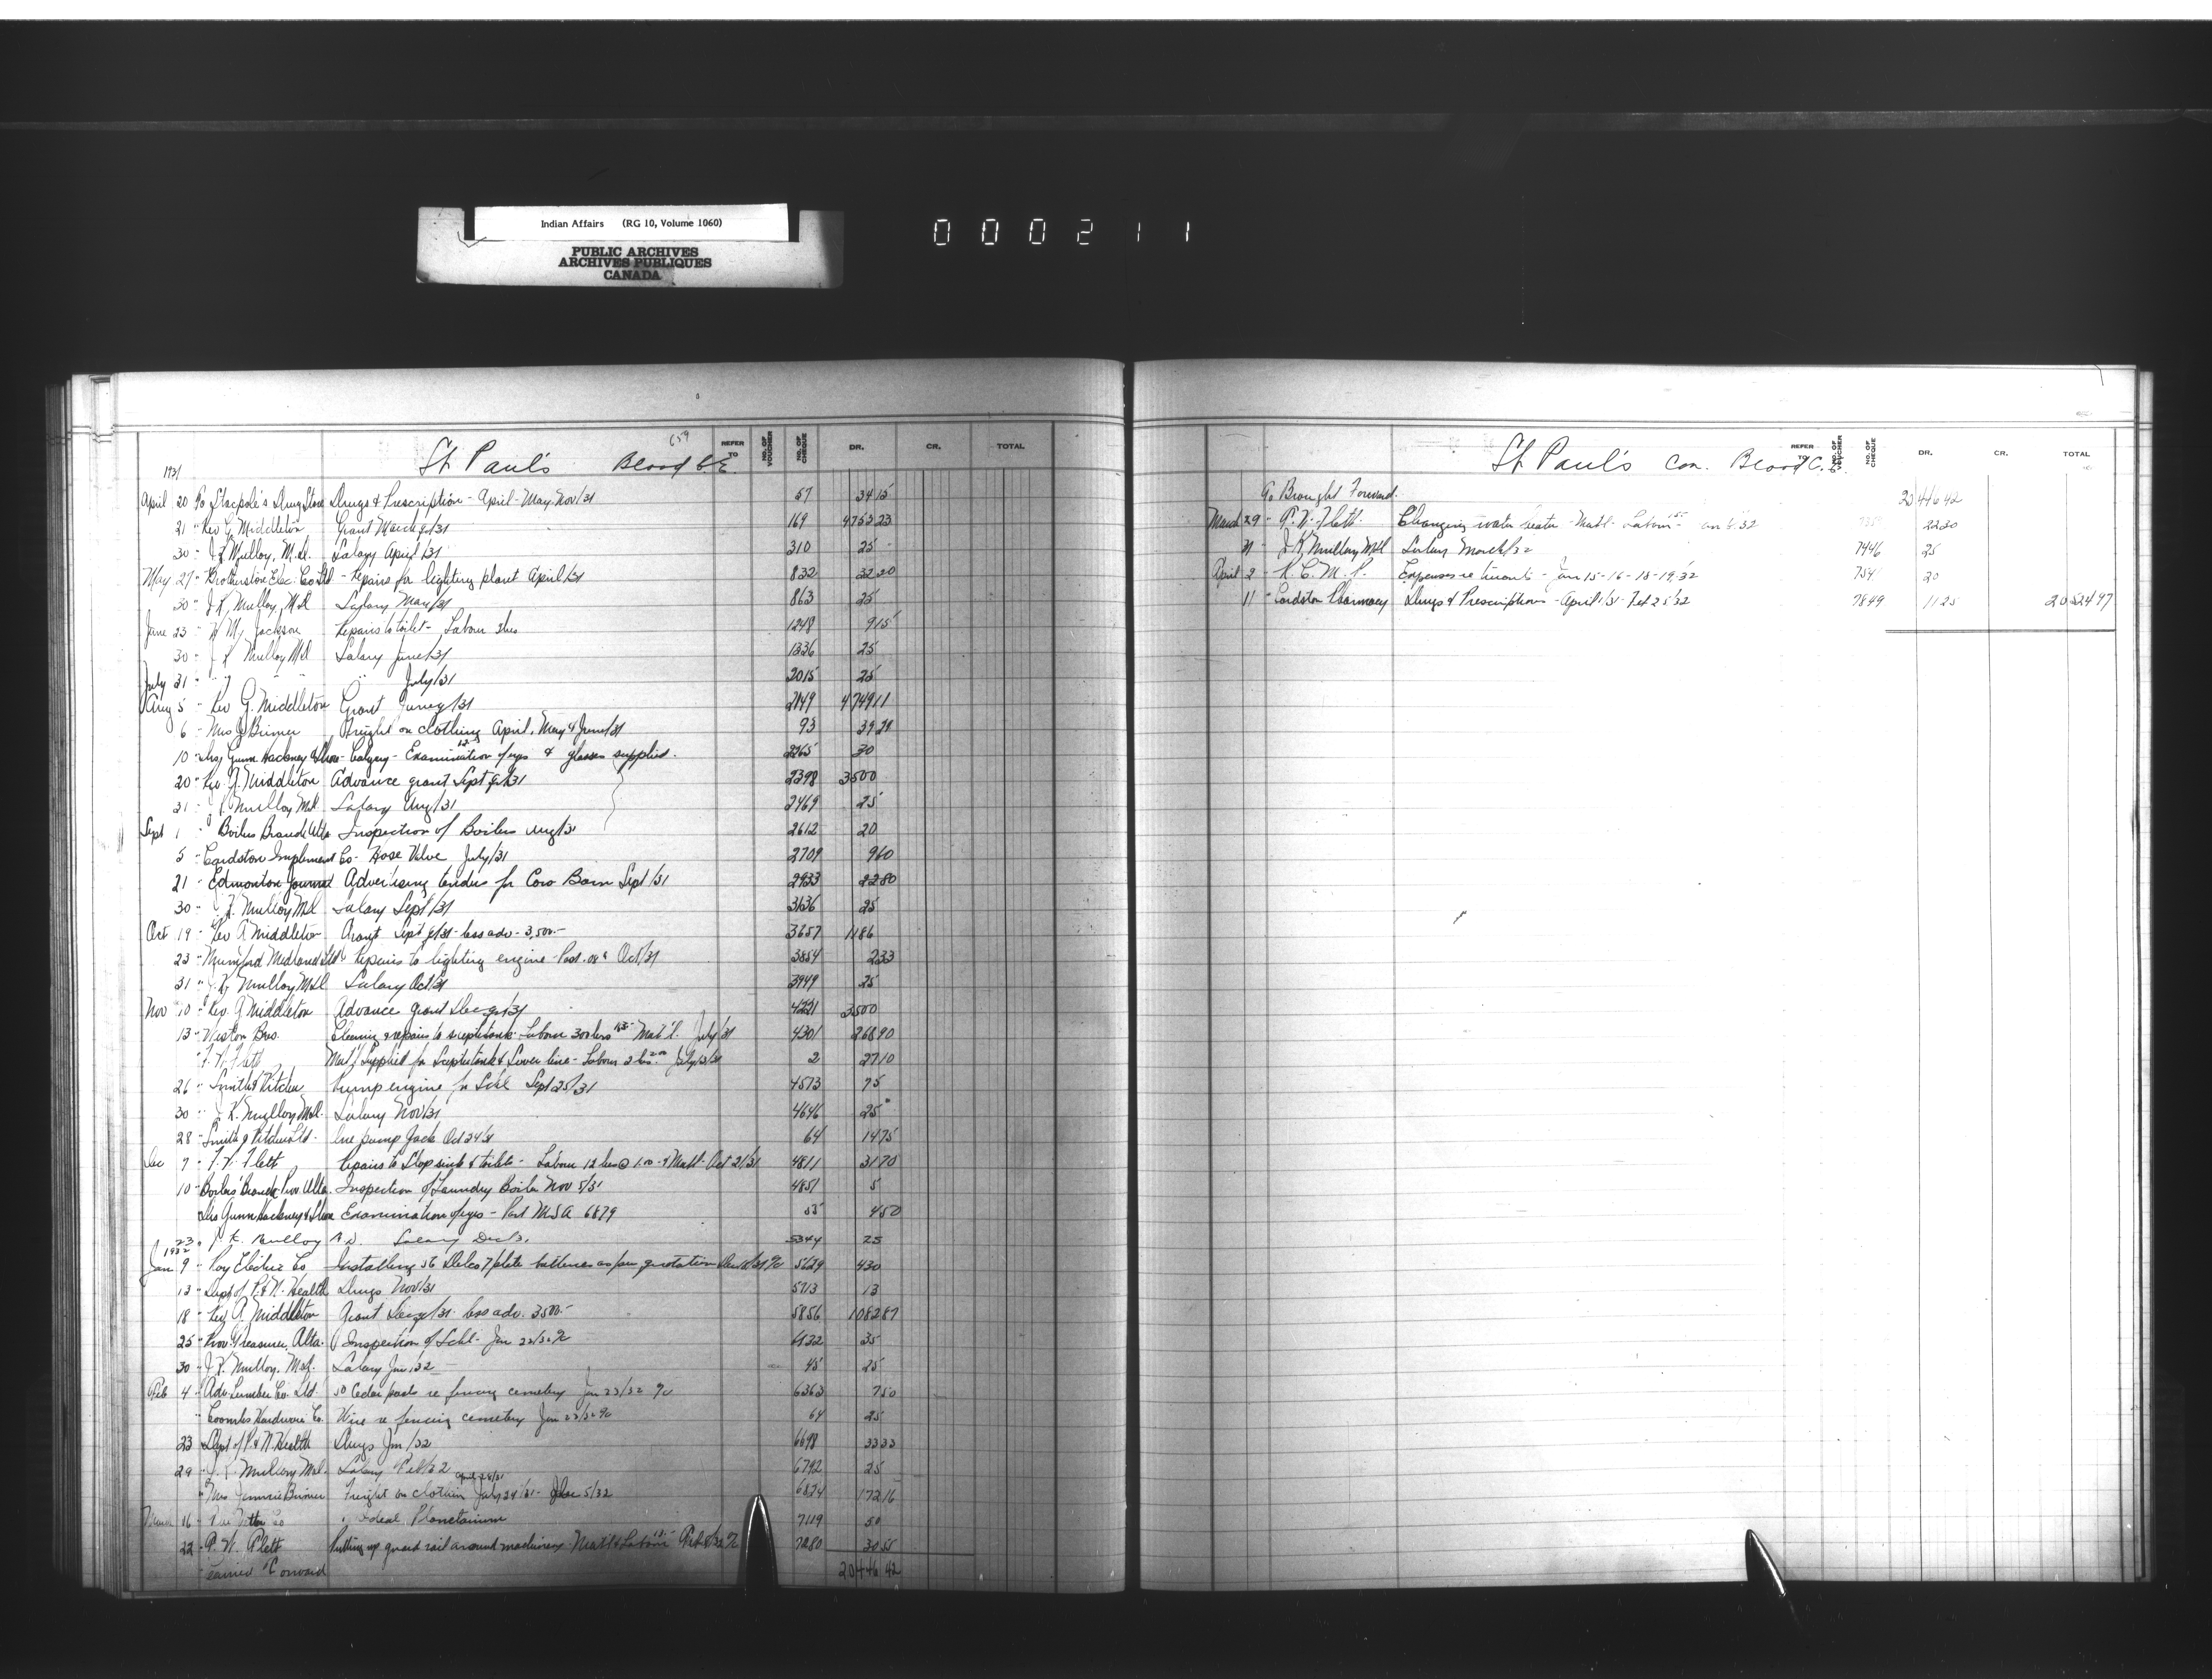 Indian Affairs (RG 10, Volume 1060)
PUBLIC ARCHIVES
ARCHIVES PUBLIQUES
CANADA
000211
659
1931 St Paul's Blood C.E. REFER TO NO. OF VOUCHER NO. OF CHEQUE DR. CR. TOTAL
April 20 To Stacpole's Drug Store Drugs & Prescription - April - May - Nov/31 57 34 15
21 " Rev G. Middleton Grant March q/31 169 4753 23
30 " J K Mulloy, M.D. Salary April/31 310 25
May 27 " Brotherstone Elec. Co Ltd - Repairs for lighting plant April/31 832 32 20
30 " J K Mulloy, M.D. Salary May/31 863 25
June 23 " M. Jackson Repairs to toilet - Labour 3hrs 1248 9 15
30 " J K Mulloy M.D. Salary June/31 1336 25
July 31 " " " July/31 2015 25
Aug 5 " Rev G. Middleton Grant June q/31 2149 4749 11
6 " Mrs J Birmer Freight on clothing April, May & June/31 93 39 21
10 " Drs Gunn Hackney & Shore - Calgary - Examination 12 of eyes & glasses supplied. 2265 30
20 " Rev A. Middleton Advance grant Sept q/31 2398 3500
31 " J K Mulloy M.D. Salary Aug/31 2469 25
Sept 1 " Boilers Branch Alta Inspection of Boilers Aug/31 2612 20
5 " Cardston Implement Co - Hose Valve July/31 2709 9 60
21 " Edmonton Journal Advertising tenders for Cow Barn Sept/31 2933 22 80
30 " J K. Mulloy M.D. Salary Sept/31 3136 25
Oct 19 " Rev A Middleton Grant Sept q/31 - less adv - 3,500.- 3657 1186
23 " Mumford Medland Ltd Repairs to lighting engine - Post. 08¢ Oct/31 3854 2 33
31 " J K Mulloy M.D. Salary Oct/31 3949 25
Nov 10 " Rev. A Middleton Advance grant Dec q/31 4221 3500
13 " Weston Bros. Cleaning & repairs to septic tank - Labour Mat'l. July/31 4301 268 90
" Flett Mat'l Supplied for Septic tank & Sewer line - Labour 2 hrs July/31 2 27 10
26 " Smith & Kitchen Pump engine for Schl Sept 25/31 4573 75
30 " J K. Mulloy M.D. Salary Nov/31 4646 25
28 " Smith & Kitchen Ltd. One pump Jack Oct 24/31 64 14 75
Dec 7 " Flett Repairs to Slop sink & toilets - Labour 12 hrs @ 1.00 - & Matl - Oct 21/31 4811 31 70
10 " Boilers Branch Prov. Alta. Inspection of Laundry Boiler Nov 5/31 4851 5
Drs Gunn Hackney & Shore Examination of eyes - Part M.S.A 6879 55 4 50
23 " J K. Mulloy M.D. Salary Dec/31 5344 25
1932
Jan 9 " Roy Electric Co Installing 56 Delco 7 plate batteries as per quotation 5629 430
13 " Dept of P. & N. Health Drugs Nov/31 5713 13
18 " Rev A Middleton Grant Dec q/31 - less adv. 3500.- 5856 1082 87
25 " Prov. Treasurer, Alta. Inspection of Schl - Jan 22/32 6132 35
30 " J K. Mulloy. M.D. Salary Jan/32 45 25
Feb 4 " Adv. Lumber Co. Ltd. 50 Cedar posts re fencing cemetery Jan 23/32 6363 7 50
" Coombs Hardware Co. Wire re fencing cemetery Jan 23/32 64 25
23 " Dept of P & N Health Drugs Jan/32 6698 33 33
29 " J K Mulloy M.D. Salary Feb/32 6792 25
" Mrs Jennie Birmer Freight on clothing April 28/31 July 24/31 - Jan 5/32 6824 172 16
March 16 " Co Ideal Planetarium 7119 50
22 " P. W. Plett Putting up guard rail around machinery Matl & Labour Feb 8/32 7280 30 55
Carried Forward 20446 42
St. Paul's Con. Blood C.E. REFER TO NO. OF VOUCHER NO. OF CHEQUE DR. CR. TOTAL
To Brought Forward. 20446 42
March 29 " P. W. Flett. Changing water heater - Matl - Labour 22 30
31 " J K Mulloy M.D. Salary March/32 7446 25
April 2 " R. C. M. P. Expenses re truants - Jan 15-16-18-19/32 20
11 " Cardston Pharmacy Drugs & Prescriptions - April 1/31 - Feb 25/32 7849 11 25 20524 97